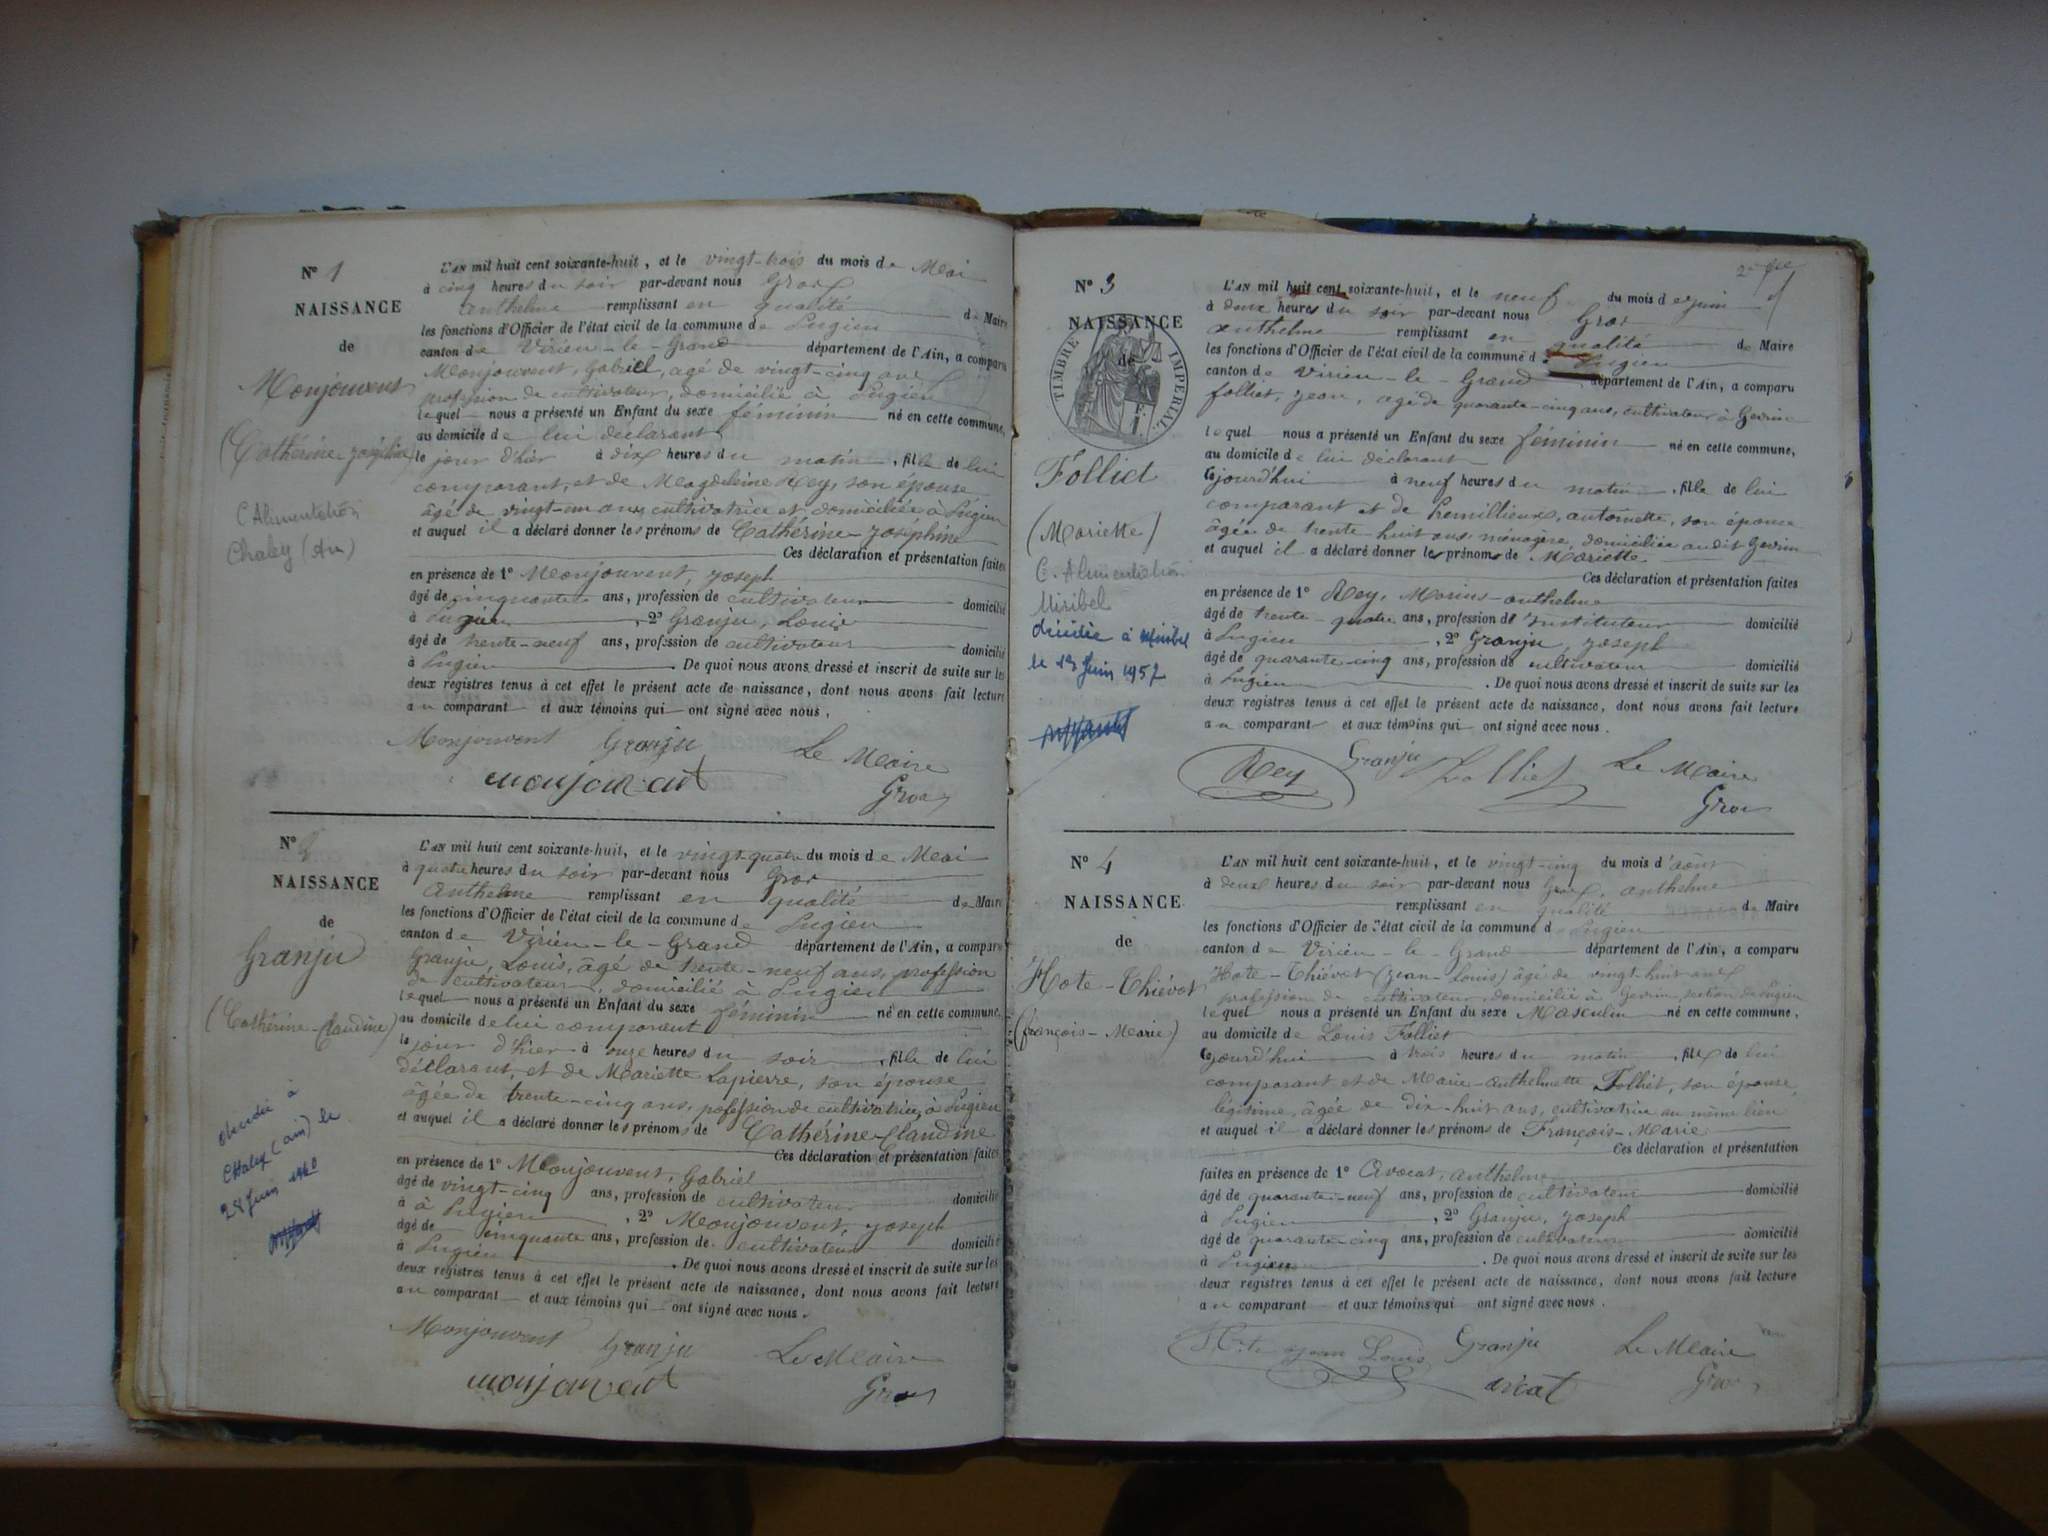 N° 1
NAISSANCE
de
Monjouvent
(Cathérine Joséphine)
C Alimentation
Chaley (Ain)
L'AN mil huit cent soixante-huit, et le vingt-trois du mois de Mai
à cinq heures du soir par-devant nous Gros
Anthelme remplissant en qualité de Maire
les fonctions d'Officier de l'état civil de la commune de Pugieu
canton de Virieu-le-Grand département de l'Ain, a comparu
Monjouvent, Gabriel, agé de vingt-cinq ans
profession de cultivateur, domicilié à Pugieu
lequel nous a présenté un Enfant du sexe féminin né en cette commune,
au domicile de lui déclarant
le jour d'hier à dix heures du matin, fille de lui
comparant, et de Magdeleine Rey, son épouse
âgé de vingt-un ans cultivatrice et domiciliée à Pugieu
et auquel il a déclaré donner les prénoms de Cathérine Joséphine
Ces déclaration et présentation faites
en présence de 1° Monjouvent, Joseph
âgé de cinquante ans, profession de cultivateur domicilié
à Pugieu, 2° Granju, Louis
âgé de trente-neuf ans, profession de cultivateur domicilié
à Pugieu. De quoi nous avons dressé et inscrit de suite sur les
deux registres tenus à cet effet le présent acte de naissance, dont nous avons fait lecture
au comparant et aux témoins qui ont signé avec nous.
Monjouvent Granju Le Maire
monjouvent Gros
N° 2
NAISSANCE
de
Granju
(Cathérine-Claudine)
décédée à
Chaley (ain) le
28 Juin 1940
L'AN mil huit cent soixante-huit, et le vingt-quatre du mois de Mai
à quatre heures du soir par-devant nous Gros
Anthelme remplissant en qualité de Maire
les fonctions d'Officier de l'état civil de la commune de Pugieu
canton de Virieu-le-Grand département de l'Ain, a comparu
Granju, Louis, âgé de trente-neuf ans, profession
de cultivateur, domicilié à Pugieu
lequel nous a présenté un Enfant du sexe féminin né en cette commune,
au domicile de lui comparant
le jour d'hier à onze heures du soir, fille de lui
déclarant, et de Mariette Lapierre, son épouse
âgée de trente-cinq ans, profession de cultivatrice, à Pugieu
et auquel il a déclaré donner les prénoms de Cathérine-Claudine
Ces déclaration et présentation faites
en présence de 1° Monjouvent, Gabriel
âgé de vingt-cinq ans, profession de cultivateur domicilié
à à Pugieu, 2° Monjouvent, Joseph
âgé de cinquante ans, profession de cultivateur domicilié
à Pugieu. De quoi nous avons dressé et inscrit de suite sur les
deux registres tenus à cet effet le présent acte de naissance, dont nous avons fait lecture
au comparant et aux témoins qui ont signé avec nous.
Monjouvent Granju Le Maire
monjouvent Gros
N° 3
NAISSANCE
de
TIMBRE IMPERIAL
Folliet
(Mariette)
C. Alimentation
Miribel
décédée à Miribel
le 13 Juin 1957
L'AN mil huit cent soixante-huit, et le neuf du mois de Juin
à deux heures du soir par-devant nous Gros
Anthelme remplissant en qualité de Maire
les fonctions d'Officier de l'état civil de la commune de Pugieu
canton de Virieu-le-Grand département de l'Ain, a comparu
folliet, Jean, agé de quarante-cinq ans, cultivateur à Gevrin
lequel nous a présenté un Enfant du sexe féminin né en cette commune,
au domicile de lui déclarant
cejourd'hui à neuf heures du matin, fille de lui
comparant et de Premillieux, antoinette, son épouse
âgée de trente huit ans ménagère, domiciliée audit Gevrin
et auquel il a déclaré donner les prénoms de Mariette
Ces déclaration et présentation faites
en présence de 1° Rey, Marius-anthelme
âgé de trente-quatre ans, profession de Instituteur domicilié
à Pugieu, 2° Granju, Joseph
âgé de quarante-cinq ans, profession de cultivateur domicilié
à Pugieu. De quoi nous avons dressé et inscrit de suite sur les
deux registres tenus à cet effet le présent acte de naissance, dont nous avons fait lecture
au comparant et aux témoins qui ont signé avec nous.
Rey Granju Folliet Le Maire
Gros
N° 4
NAISSANCE
de
Hote-Thiévot
(françois-Marie)
L'AN mil huit cent soixante-huit, et le vingt-cinq du mois d'août
à deux heures du soir par-devant nous Gros, anthelme
remplissant en qualité de Maire
les fonctions d'Officier de l'état civil de la commune de Pugieu
canton de Virieu-le-Grand département de l'Ain, a comparu
Hote-Thiévot (Jean-Louis) âgé de vingt-huit ans
profession de cultivateur domicilié à Gevrin, section de Pugieu
lequel nous a présenté un Enfant du sexe Masculin né en cette commune,
au domicile de Louis Folliet
cejourd'hui à trois heures du matin, fils de lui
comparant et de Marie-anthelmette Folliet, son épouse,
légitime, âgée de dix-huit ans, cultivatrice au même lieu
et auquel il a déclaré donner les prénoms de François-Marie
Ces déclaration et présentation
faites en présence de 1° Avocat, anthelme
âgé de quarante-neuf ans, profession de cultivateur domicilié
à Pugieu, 2° Granju, Joseph
âgé de quarante-cinq ans, profession de cultivateur domicilié
à Pugieu. De quoi nous avons dressé et inscrit de suite sur les
deux registres tenus à cet effet le présent acte de naissance, dont nous avons fait lecture
au comparant et aux témoins qui ont signé avec nous.
Hote Jean Louis Granju Le Maire
Gros